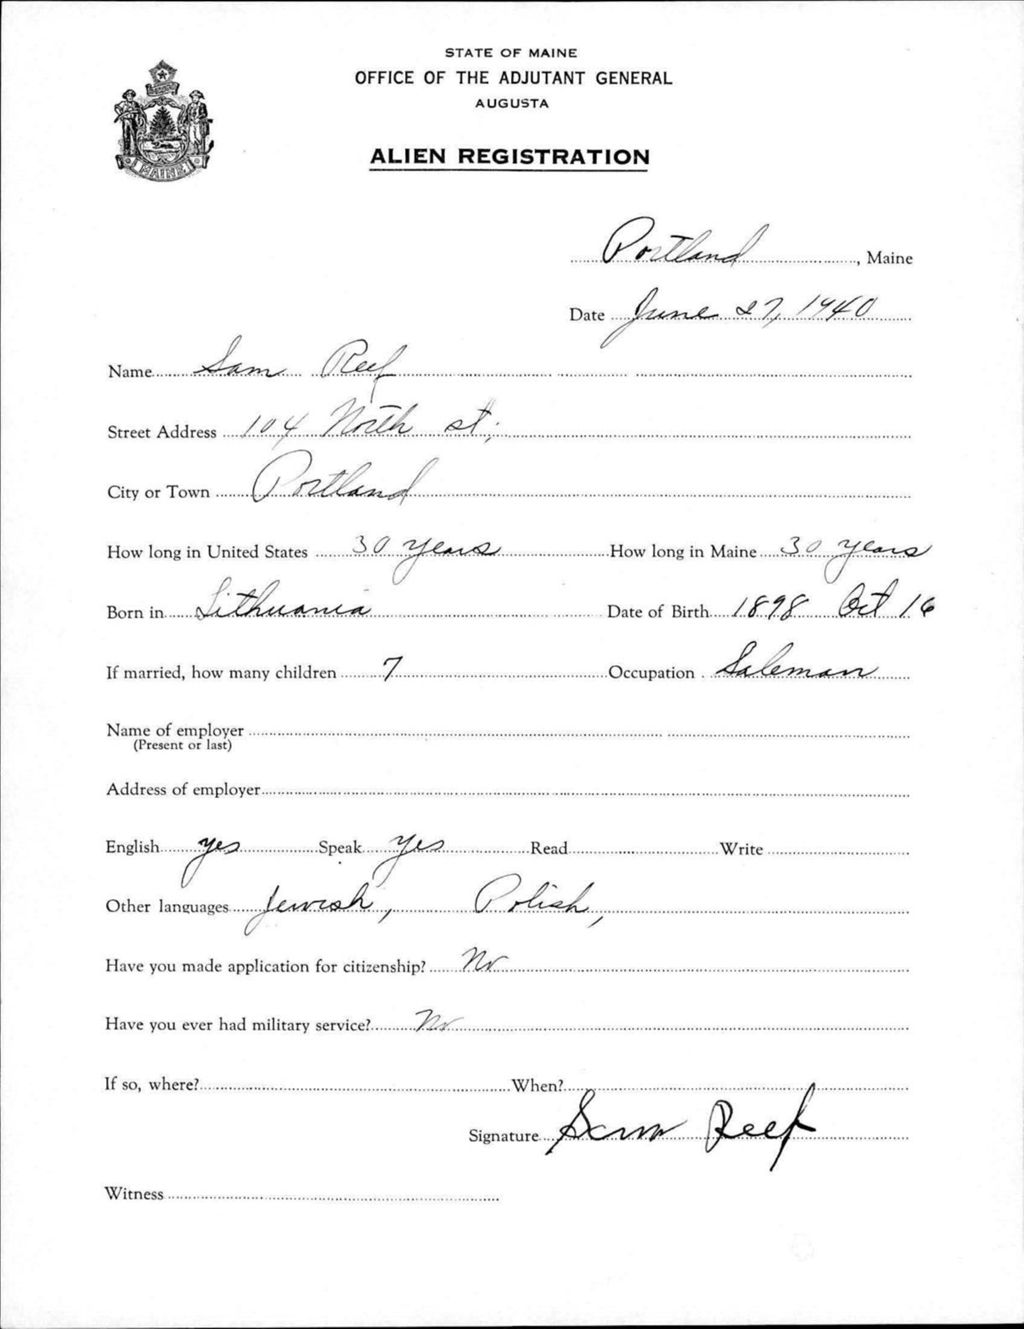 STATE OF MAINE
OFFICE OF THE ADJUTANT GENERAL
AUGUSTA
ALIEN REGISTRATION
MAINE
Portland, Maine
Date June 27, 1940
Name Sam Reef
Street Address 104 North st,
City or Town Portland
How long in United States 30 years How long in Maine 30 years
Born in Lithuania Date of Birth 1898 Oct 16
If married, how many children 7 Occupation Saleman
Name of employer
(Present or last)
Address of employer
English yes Speak yes Read Write
Other languages Jewish, Polish,
Have you made application for citizenship? No
Have you ever had military service? No
If so, where? When?
Signature Sam Reef
Witness